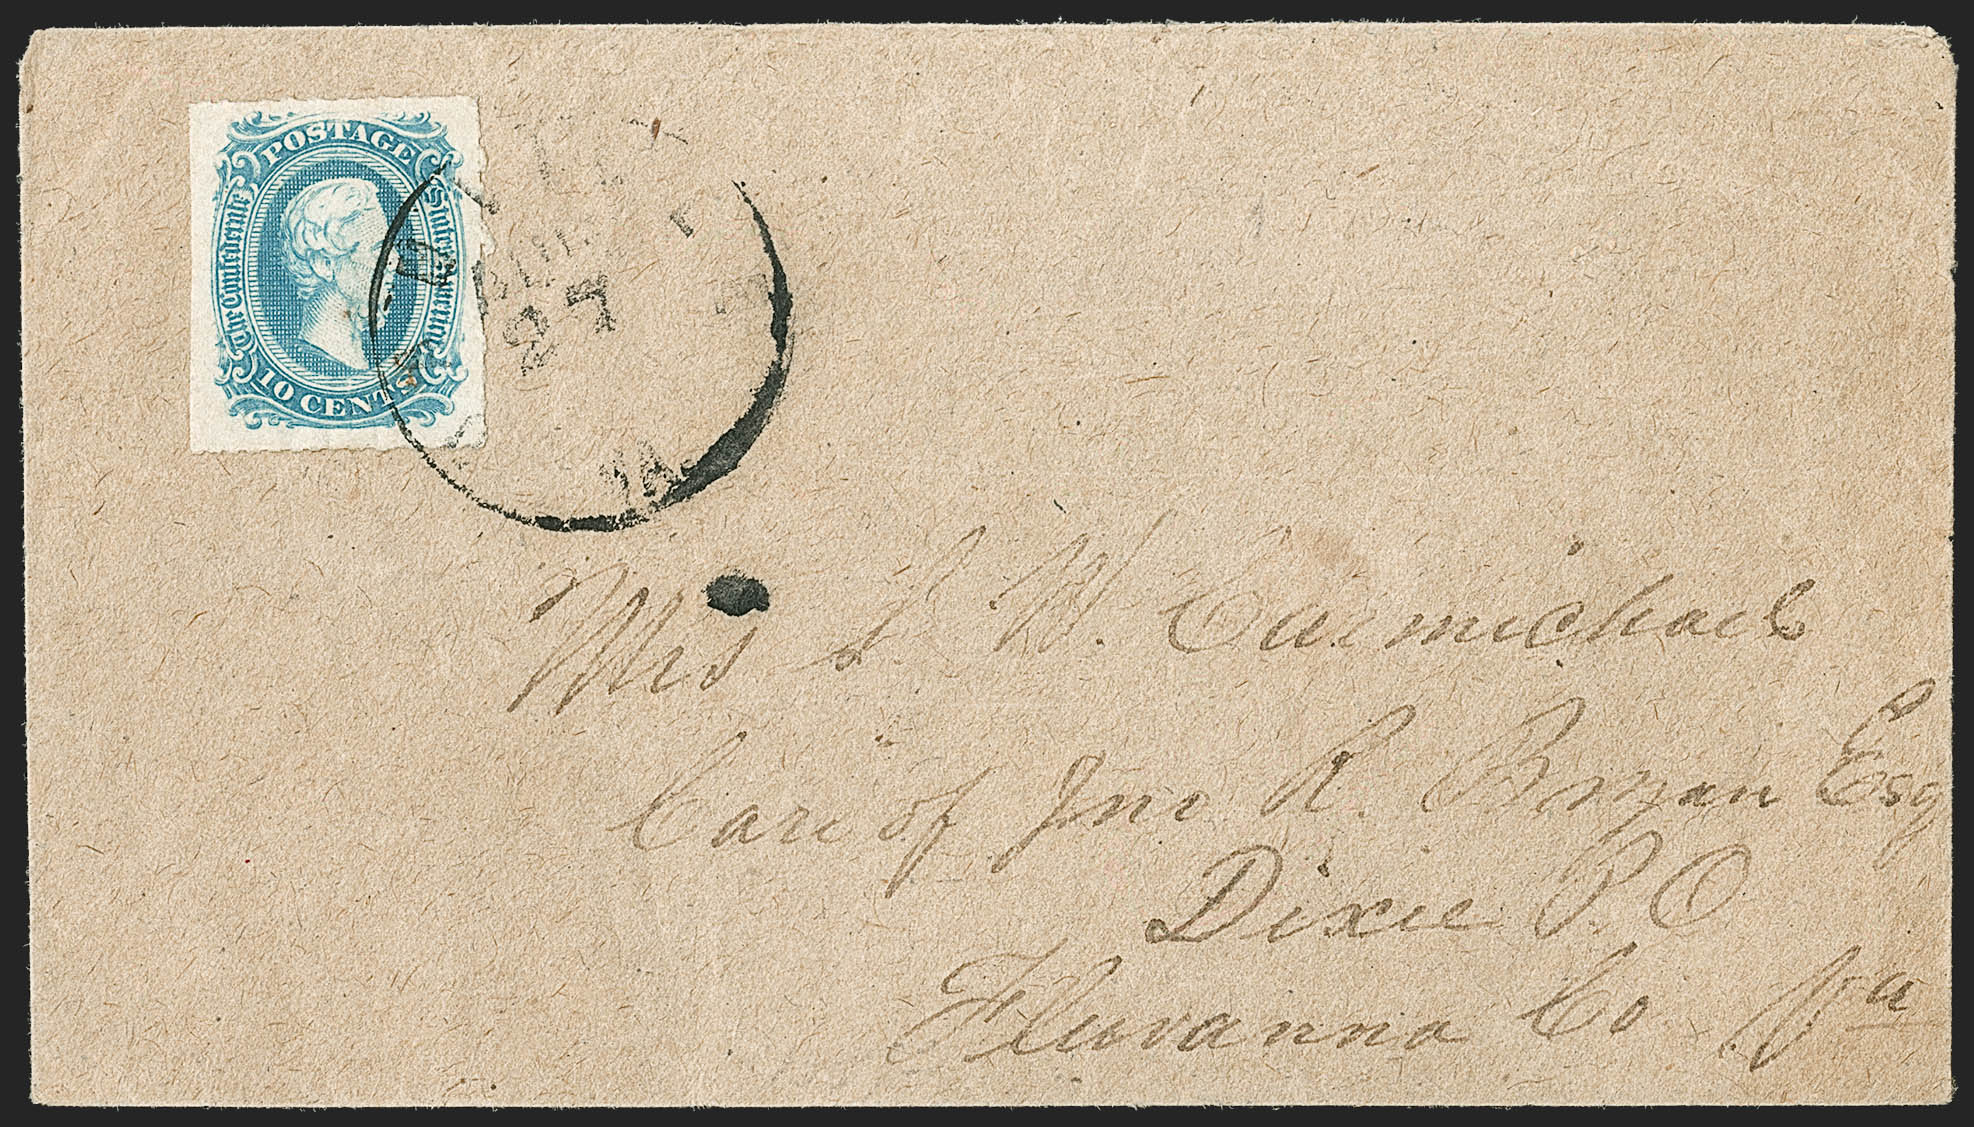 POSTAGE
The Confederate States of America
10 CENTS
27
VA.
Mrs W. Carmichael
Care of Jno R. Bryan Esq
Dixie P.O
Fluvanna Co Va